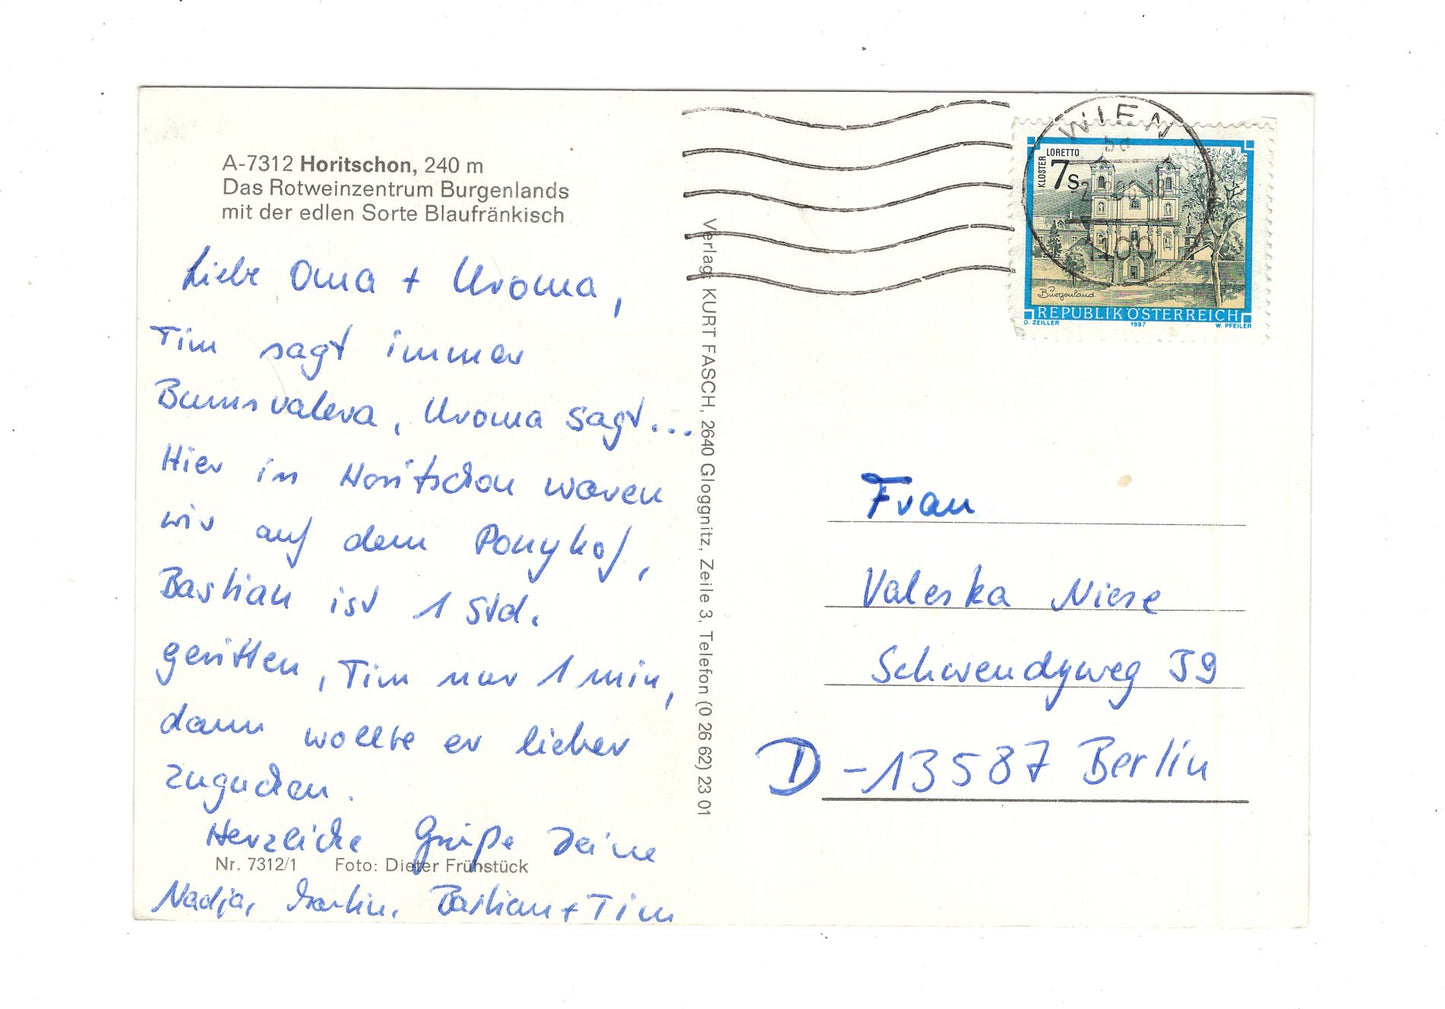 A-7312 Horitschon, 240 m
Das Rotweinzentrum Burgenlands
mit der edlen Sorte Blaufränkisch
Liebe Oma + Uroma,
Tim sagt immer
Bumsvalera, Uroma sagt...
Hier in Horitschon waren
wir auf dem Ponyhof,
Bastian ist 1 Std.
geritten, Tim nur 1 min,
dann wollte er lieber
zugucken.
Herzliche Grüße Deine
Nadja, Martin, Bastian + Tim
Nr. 7312/1 Foto: Dieter Frühstück
Verlag: KURT FASCH, 2640 Gloggnitz, Zeile 3, Telefon (0 26 62) 23 01
WIEN
1400
KLOSTER LORETTO
7s
Burgenland
REPUBLIK ÖSTERREICH
O. ZEILLER 1987 W. PFEILER
Frau
Valeska Niese
Schwendyweg 59
D-13587 Berlin